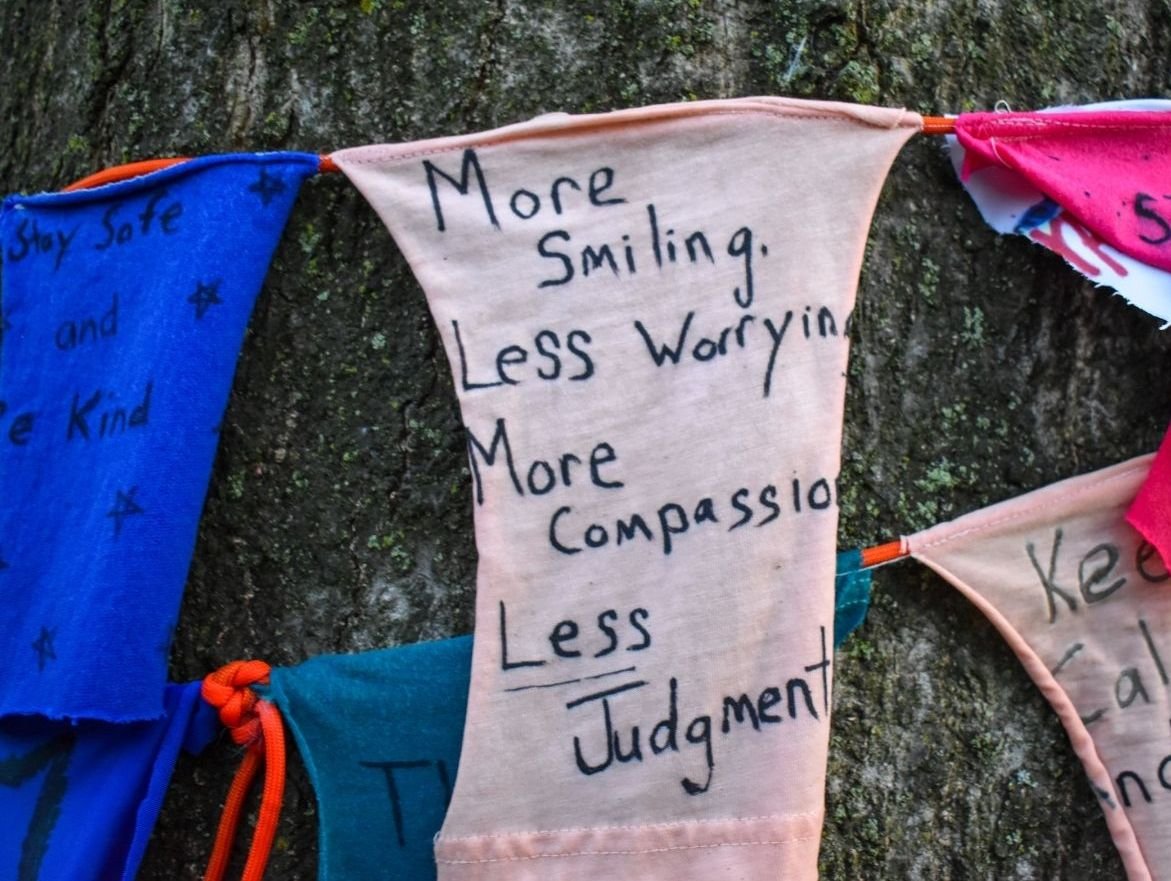 Stay Safe
and
e Kind
More
Smiling.
Less Worryin
More
Compassion
Less
Judgment
Kee
Cal